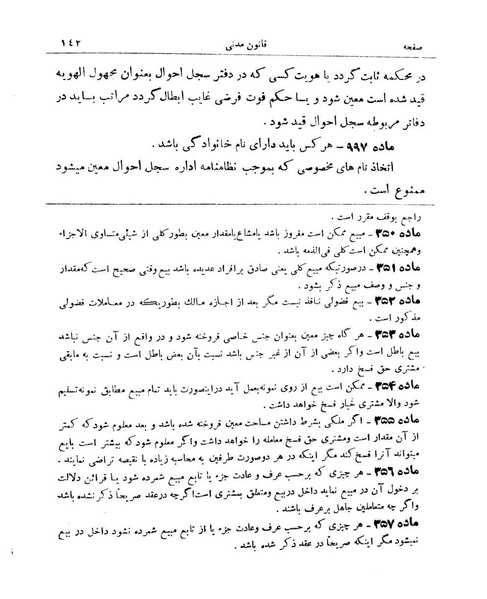 صفحه قانون مدنی ۱۴۲
در محکمه ثابت گردد یا هویت کسی که در دفتر سجل احوال بعنوان مجهول الهویه
قید شده است معین شود و یا حکم فوت فرضی غایب ابطال گردد مراتب باید در
دفاتر مربوطه سجل احوال قید شود .
ماده ۹۹۷ - هرکس باید دارای نام خانوادگی باشد .
اتخاذ نام های مخصوصی که بموجب نظامنامه اداره سجل احوال معین میشود
ممنوع است .
راجع بوقف مقرر است .
ماده ۳۵۰ - مبیع ممکن است مفروز باشد یامشاع یامقدار معین بطورکلی از شیئی متساوی الاجزاء
وهمچنین ممکن است کلی فی‌الذمه باشد .
ماده ۳۵۱ - درصورتیکه مبیع کلی یعنی صادق برافراد عدیده باشد بیع وقتی صحیح است که مقدار
و جنس و وصف مبیع ذکر بشود .
ماده ۳۵۲ - بیع فضولی نافذ نیست مگر بعد از اجازه مالك بطوریکه در معاملات فضولی
مذکور است .
ماده ۳۵۳ - هر گاه چیز معین بعنوان جنس خاصی فروخته شود و در واقع از آن جنس نباشد
بیع باطل است واگر بعضی از آن از غیر جنس باشد نسبت بآن بعض باطل است و نسبت به مابقی
مشتری حق فسخ دارد .
ماده ۳۵۴ - ممکن است بیع از روی نمونه بعمل آید دراینصورت باید تمام مبیع مطابق نمونه تسلیم
شود والا مشتری خیار فسخ خواهد داشت .
ماده ۳۵۵ - اگر ملکی بشرط داشتن مساحت معین فروخته شده باشد و بعد معلوم شود که کمتر
از آن مقدار است ومشتری حق فسخ معامله را خواهد داشت واگر معلوم شود که بیشتر است بایع
میتواند آنرا فسخ کند مگر اینکه در هر دوصورت طرفین به محاسبه زیاده یا نقیصه تراضی نمایند .
ماده ۳۵۶ - هر چیزی که برحسب عرف و عادت جزء یا تابع مبیع شمرده شود یا قرائن دلالت
بر دخول آن در مبیع نماید داخل دربیع ومتعلق بمشتری است اگرچه درعقد صریحاً ذکر نشده باشد
واگر چه متعاملین جاهل برعرف باشند .
ماده ۳۵۷ - هر چیزی که برحسب عرف وعادت جزء یا از تابع مبیع شمرده نشود داخل در بیع
نمیشود مگر اینکه صریحاً در عقد ذکر شده باشد .